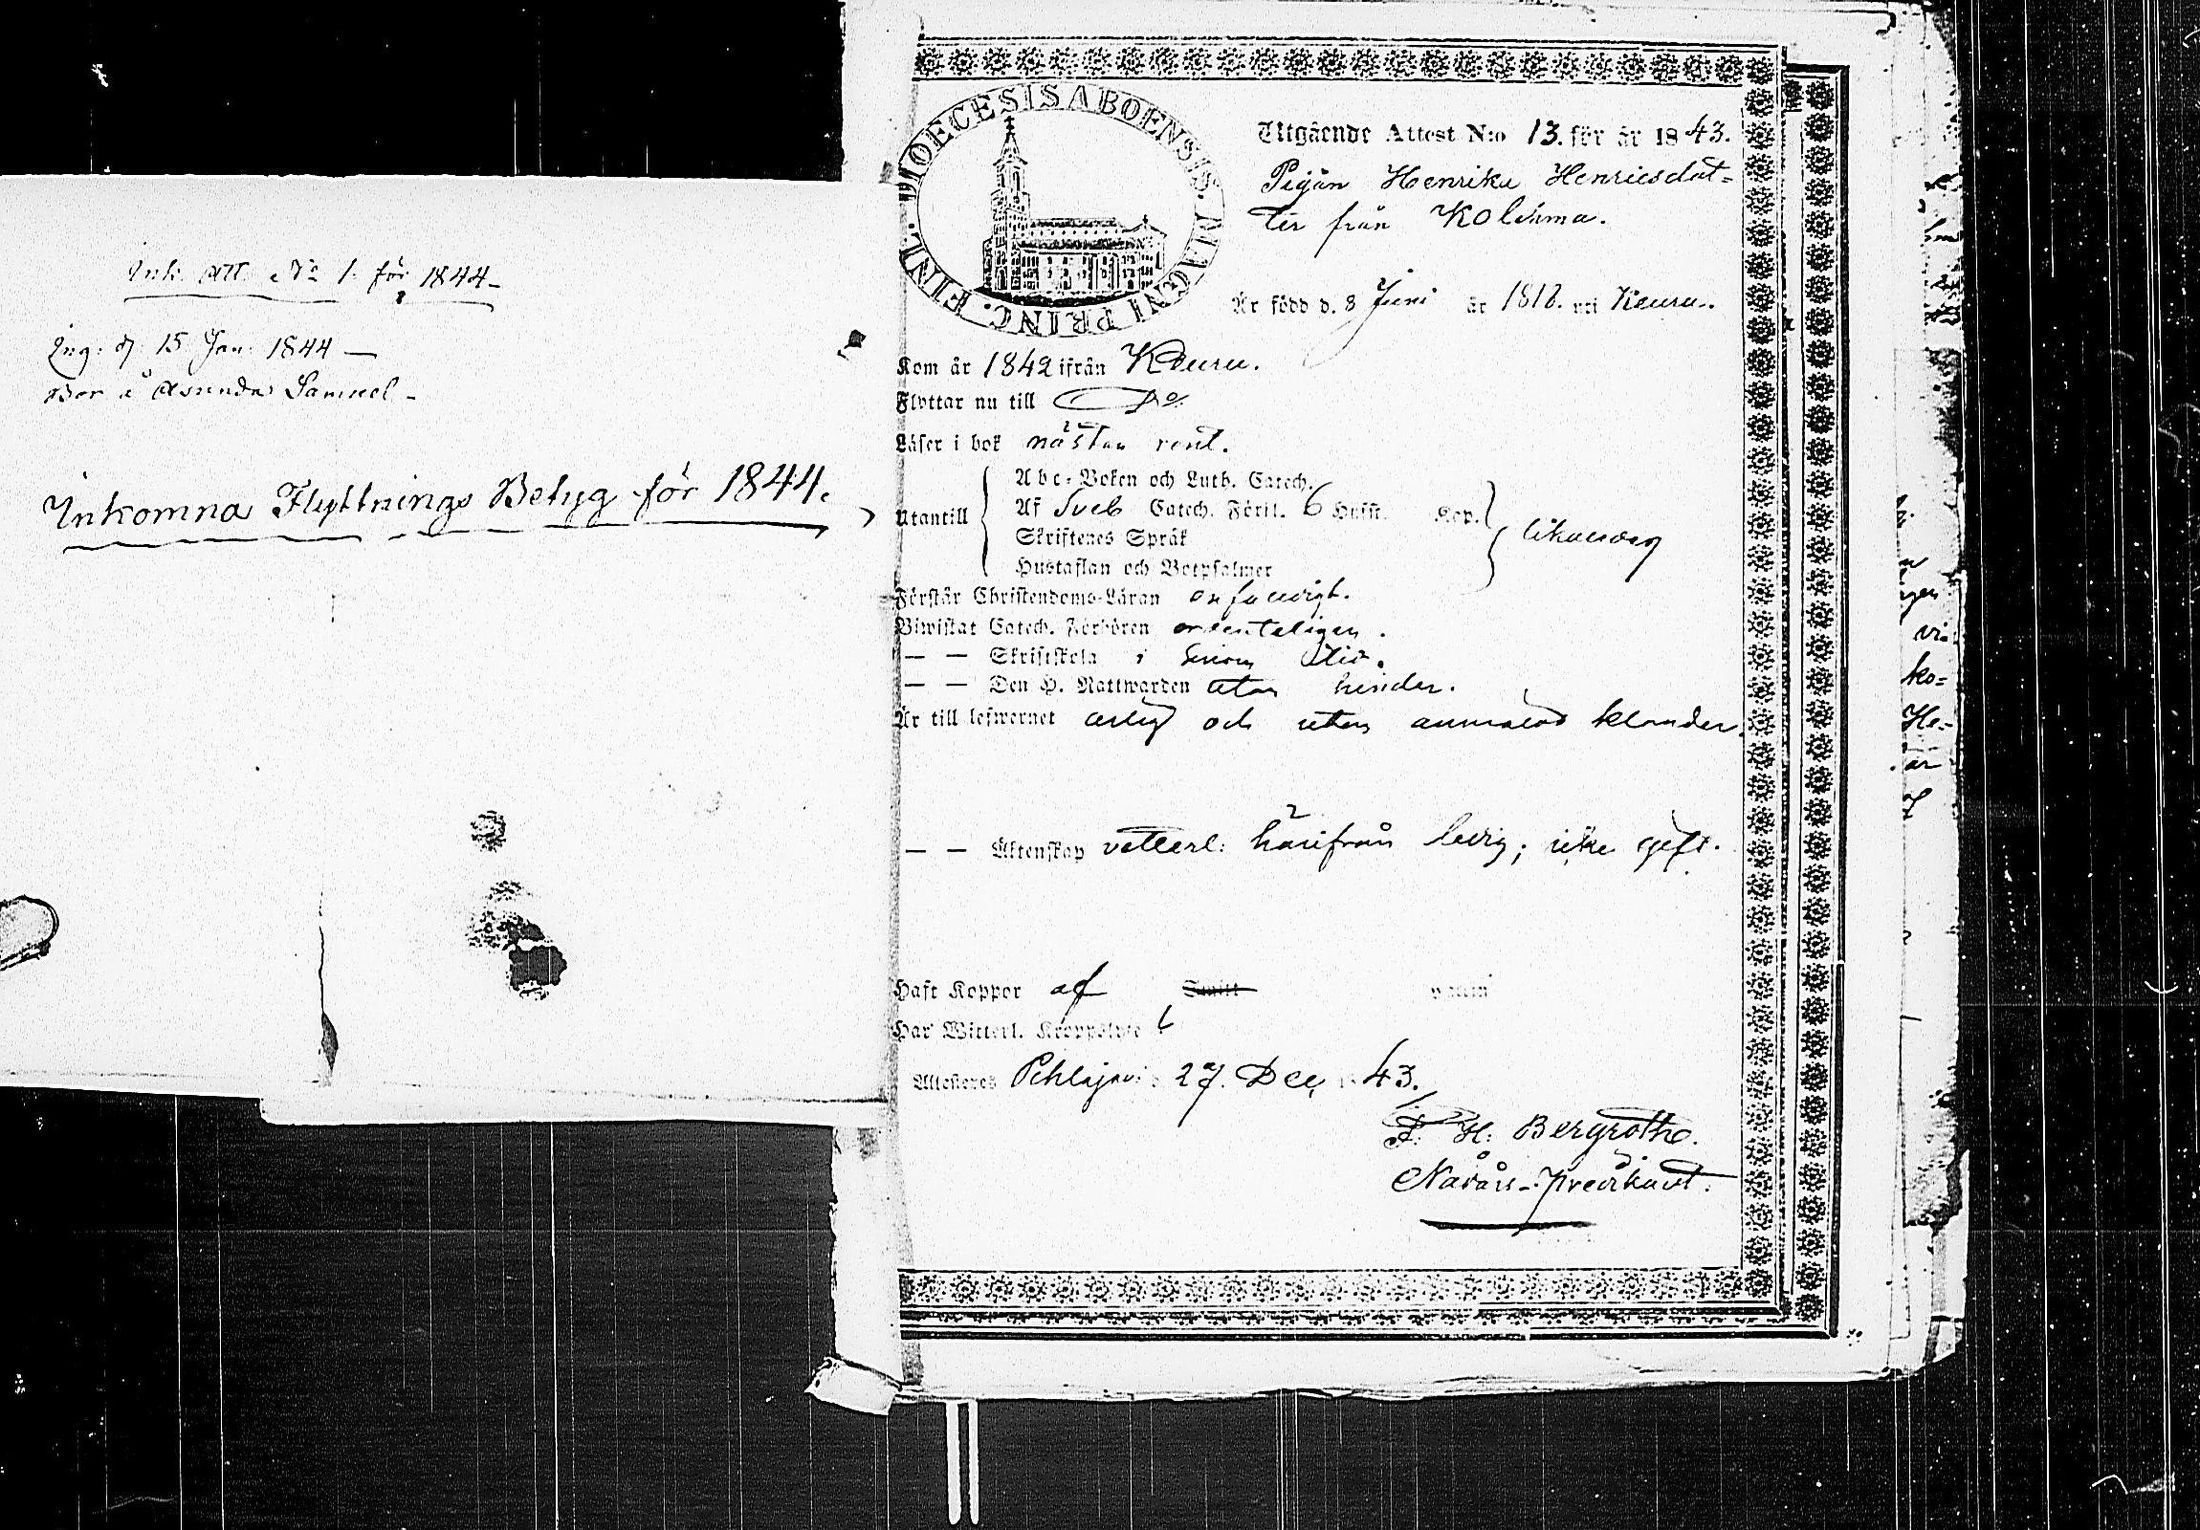 Ink. Att. No 1. för 1844
Ing. d. 15 Jan. 1844 —
Bor å Asunda Samuel
Inkomna Flyttnings Betyg för 1844.
DIOECESIS ABOENSIS. MAGNI PRINC. FINL.
Utgående Attest N:o 13. för år 1843.
Pigan Henrika Henricsdot=
ter från Kolehma.
Är född d. 8 Juni år 1818. uti Keuru.
Kom år 1842 ifrån Keuru.
Flyttar nu till Do.
Läser i bok nästan rent.
Utantill
Abc-Boken och Luth. Catech.
Af Sveb Catech. Förkl. 6 Hufst. Kop.
Skriftenes Språk
Hustaflan och Botpsalmer
likaledes
Förstår Christendoms-Läran enfaldigt.
Biwistat Catech. Förhören ordenteligen.
— — Skriftskola i sinom tid.
— — Den H. Nattwarden utan hinder.
Är till lefwernet ärlig och utan anmäld klander.
— — Äktenskap vetterl. härifrån ledig; icke gift.
Haft Koppor af
Har Witterl. Kroppslyte
Attesteres Pihlajavesi 27. Dec. 43.
F. H. Bergroth.
Nådårs-Predikant.
ko=
He=
är